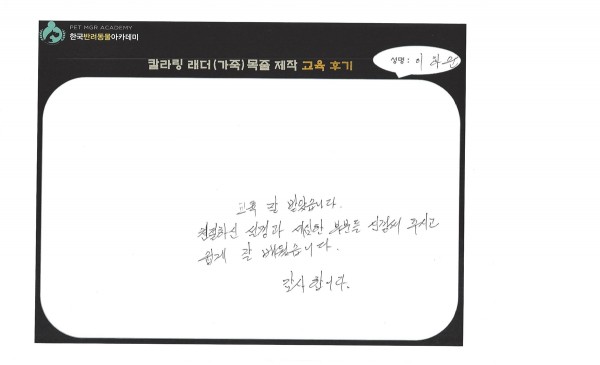 PET MGR ACADEMY
한국반려동물아카데미
칼라링 래더(가죽)목줄 제작 교육 후기
성명 : 이
교육 잘 받았습니다.
친절하신 설명과 세심한 부분들 신경써 주시고
쉽게 잘 배웠습니다.
감사합니다.